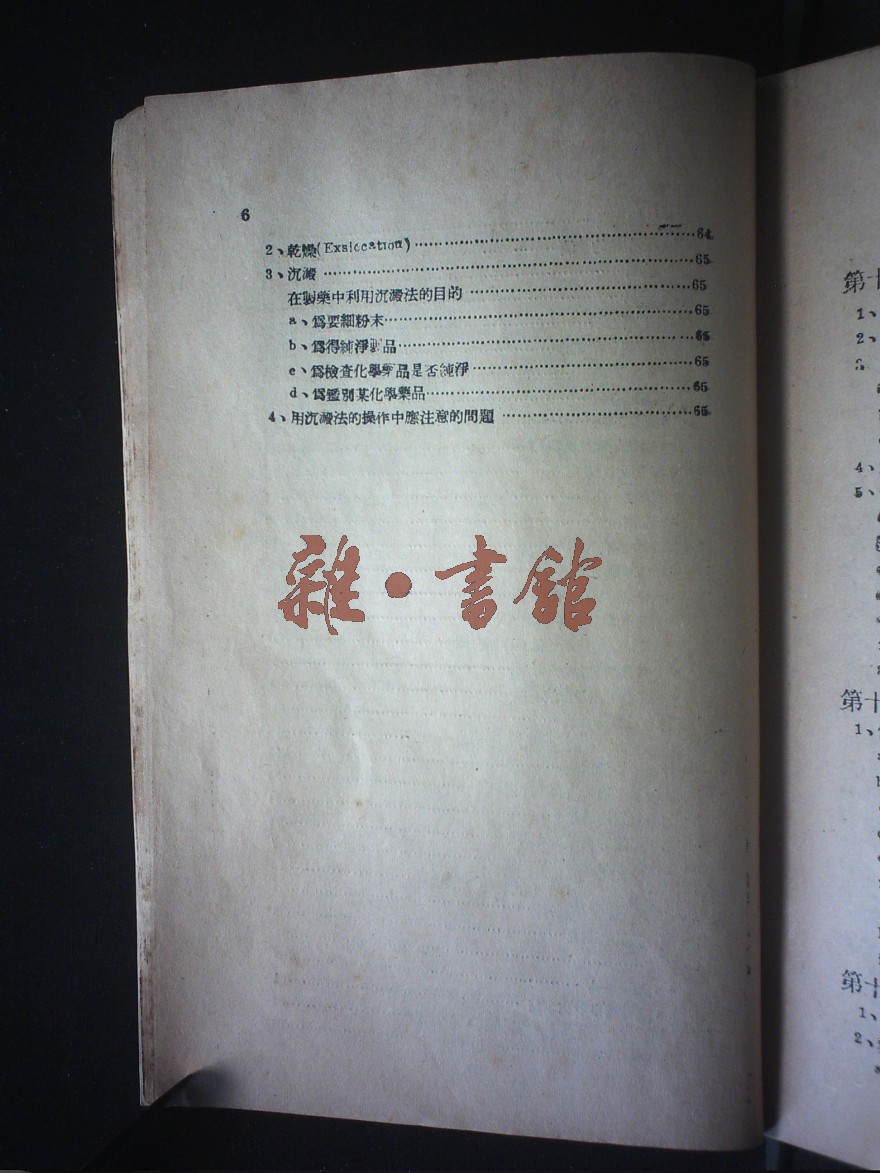 6
2、乾燥(Exsiccation)……64
3、沉澱……65
在製藥中利用沉澱法的目的……65
a、爲要細粉末……65
b、爲得純淨製品……65
c、爲檢查化學藥品是否純淨……65
d、爲鑑別某化學藥品……65
4、用沉澱法的操作中應注意的問題……65
雜·書館
第十
1、
2、
4、
5、
第十
1、
第十
1、
2、